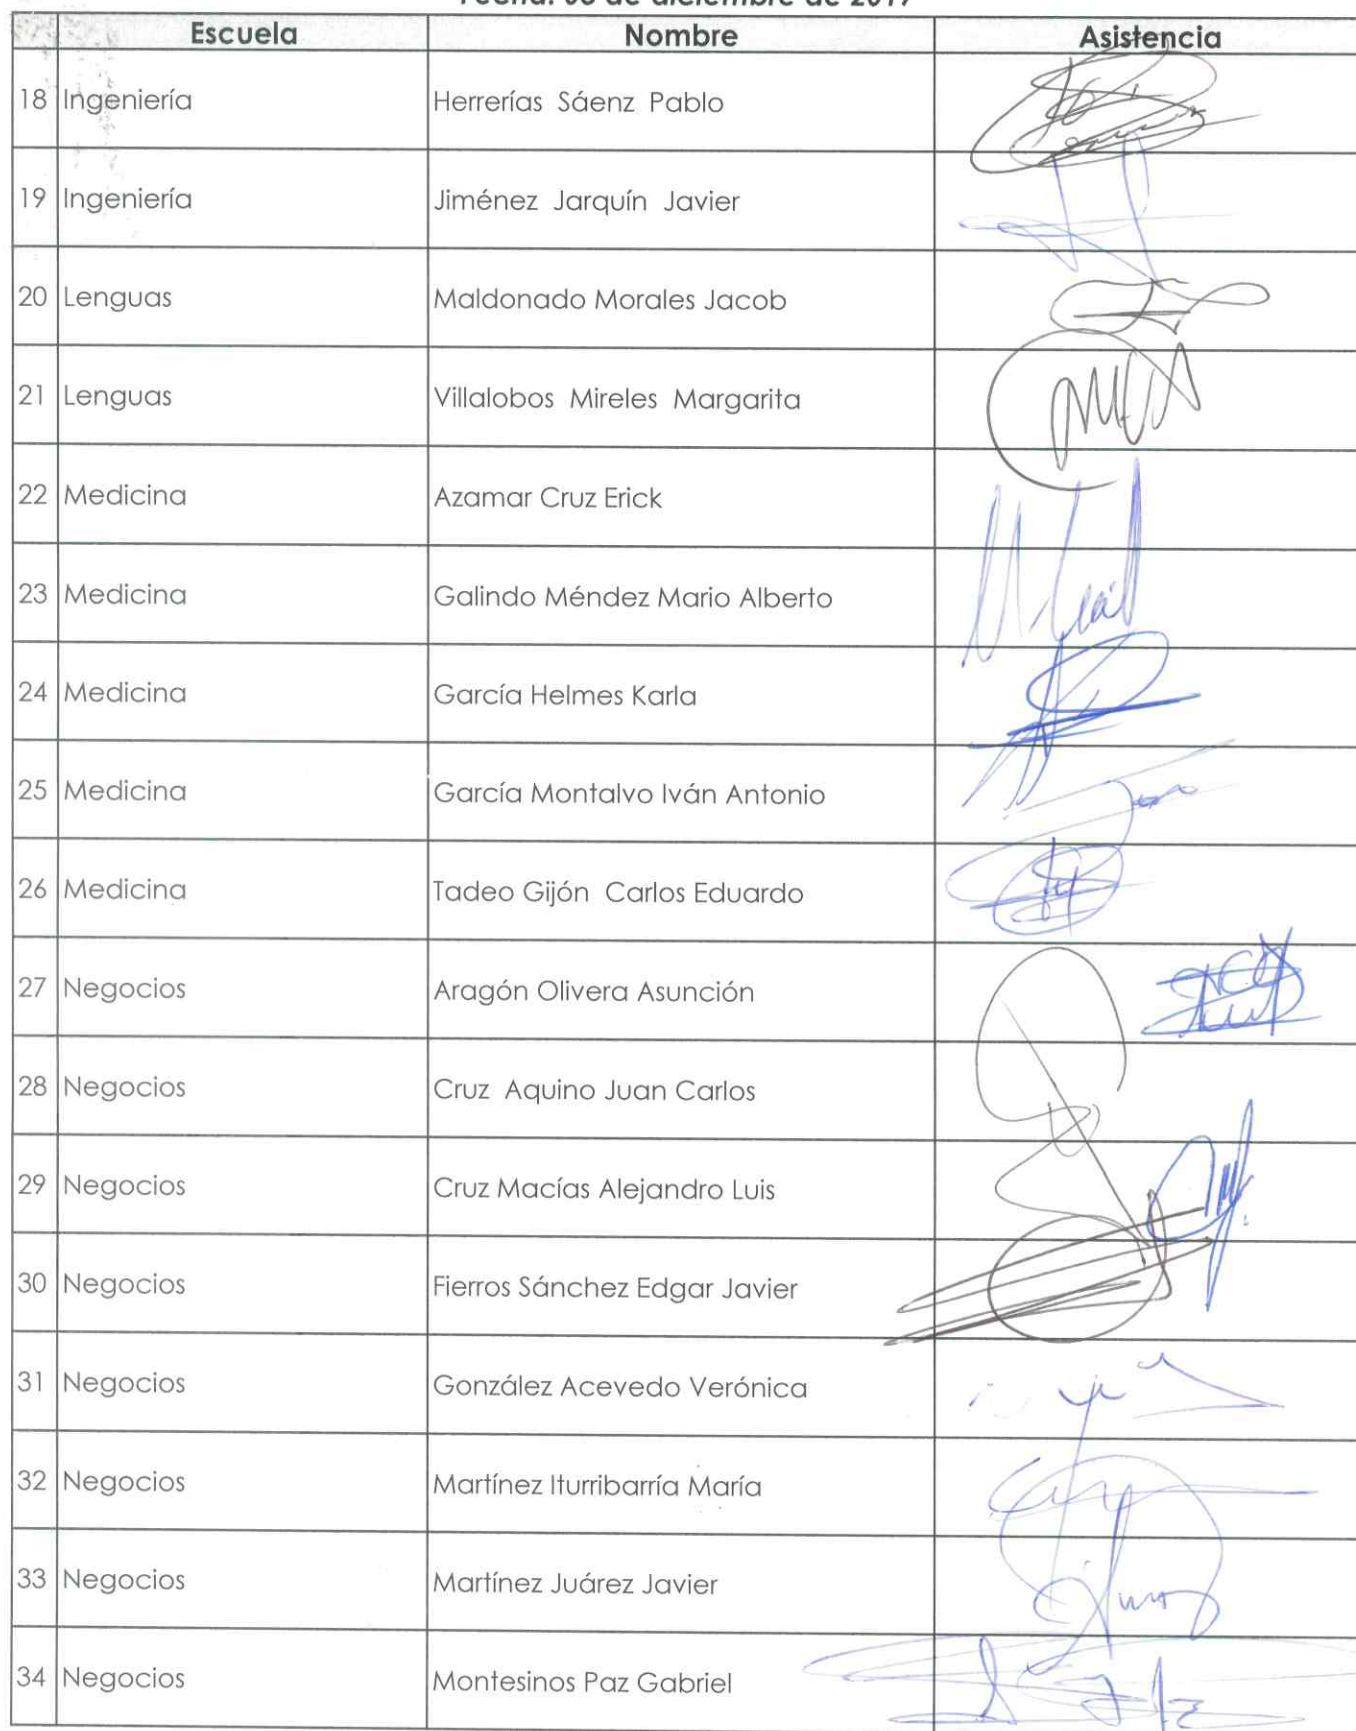 de diciembre de 2019
Escuela Nombre Asistencia
18 Ingeniería Herrerías Sáenz Pablo
19 Ingeniería Jiménez Jarquín Javier
20 Lenguas Maldonado Morales Jacob
21 Lenguas Villalobos Mireles Margarita
22 Medicina Azamar Cruz Erick
23 Medicina Galindo Méndez Mario Alberto
24 Medicina García Helmes Karla
25 Medicina García Montalvo Iván Antonio
26 Medicina Tadeo Gijón Carlos Eduardo
27 Negocios Aragón Olivera Asunción
28 Negocios Cruz Aquino Juan Carlos
29 Negocios Cruz Macías Alejandro Luis
30 Negocios Fierros Sánchez Edgar Javier
31 Negocios González Acevedo Verónica
32 Negocios Martínez Iturribarría María
33 Negocios Martínez Juárez Javier
34 Negocios Montesinos Paz Gabriel